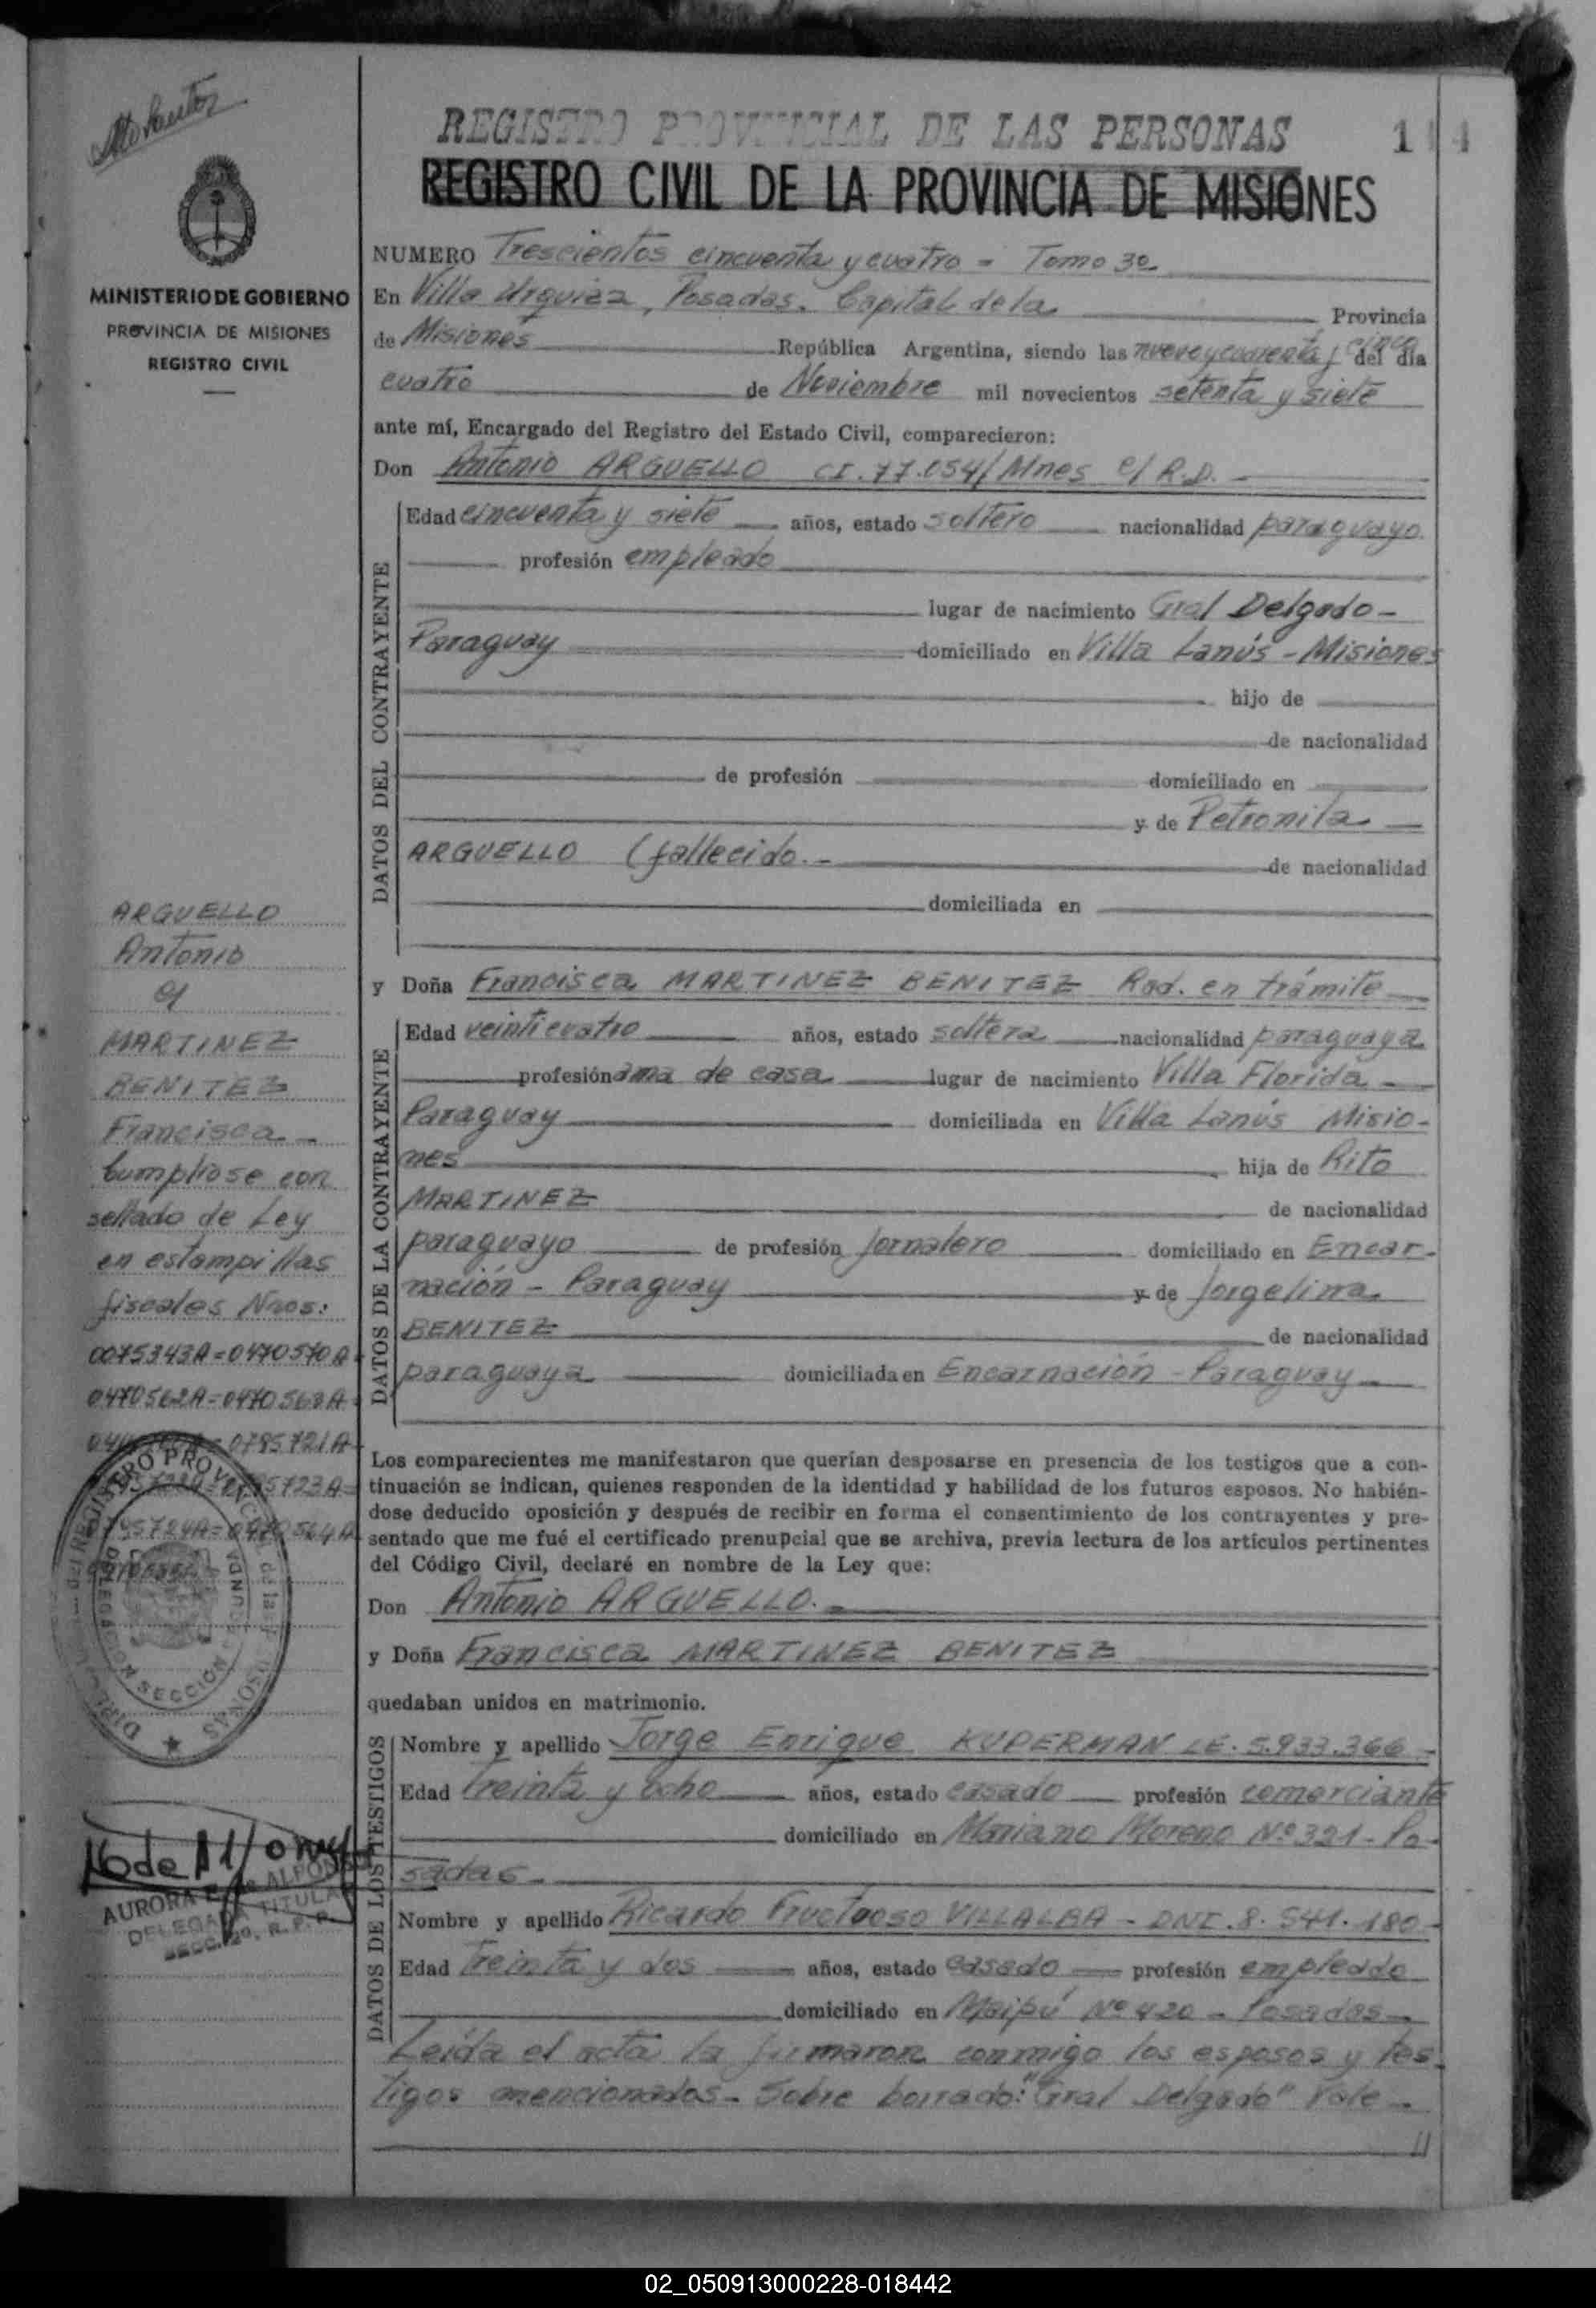 REGISTRO PROVINCIAL DE LAS PERSONAS
REGISTRO CIVIL DE LA PROVINCIA DE MISIONES
MINISTERIO DE GOBIERNO
PROVINCIA DE MISIONES
REGISTRO CIVIL
NUMERO Trescientos cincuenta y cuatro - Tomo 3º
En Villa Urquiza, Posadas. Capital de la Provincia
de Misiones República Argentina, siendo las nueve y cuarenta y cinco del día
cuatro de Noviembre mil novecientos setenta y siete
ante mí, Encargado del Registro del Estado Civil, comparecieron:
Don Antonio ARGUELLO CI. 77.054/Mnes e/ R.D. -
DATOS DEL CONTRAYENTE
Edad cincuenta y siete años, estado soltero nacionalidad paraguayo
profesión empleado
lugar de nacimiento Gral Delgado -
Paraguay domiciliado en Villa Lanús - Misiones
hijo de
de nacionalidad
de profesión domiciliado en
y de Petronila
ARGUELLO (fallecido. - de nacionalidad
domiciliada en
y Doña Francisca MARTINEZ BENITEZ Rad. en trámite
DATOS DE LA CONTRAYENTE
Edad veinticuatro años, estado soltera nacionalidad paraguaya
profesión ama de casa lugar de nacimiento Villa Florida -
Paraguay domiciliada en Villa Lanús Misio-
nes hija de Rito
MARTINEZ de nacionalidad
paraguayo de profesión jornalero domiciliado en Encar-
nación - Paraguay y de Jorgelina
BENITEZ de nacionalidad
paraguaya domiciliada en Encarnación - Paraguay
Los comparecientes me manifestaron que querían desposarse en presencia de los testigos que a con-
tinuación se indican, quienes responden de la identidad y habilidad de los futuros esposos. No habién-
dose deducido oposición y después de recibir en forma el consentimiento de los contrayentes y pre-
sentado que me fué el certificado prenupcial que se archiva, previa lectura de los artículos pertinentes
del Código Civil, declaré en nombre de la Ley que:
Don Antonio ARGUELLO. -
y Doña Francisca MARTINEZ BENITEZ
quedaban unidos en matrimonio.
DATOS DE LOS TESTIGOS
Nombre y apellido Jorge Enrique KUPERMAN LE. 5.933.366 -
Edad treinta y ocho años, estado casado profesión comerciante
domiciliado en Mariano Moreno Nº 321 - Po-
sadas -
Nombre y apellido Ricardo Fructuoso VILLALBA - DNI. 8.541.180 -
Edad treinta y dos años, estado casado profesión empleado
domiciliado en Maipú Nº 420 - Posadas -
Leída el acta la firmaron conmigo los esposos y tes-
tigos mencionados - Sobre borrado: "Gral Delgado" Vale -
ARGUELLO
Antonio
c/
MARTINEZ
BENITEZ
Francisca -
Cumplióse con
sellado de Ley
en estampillas
fiscales Nros:
0075343A = 0470570A
0470562A = 0470563A
0795721A
AURORA
DELEGADA TITULAR
SECC. 2º. R. P. P.
02_050913000228-018442